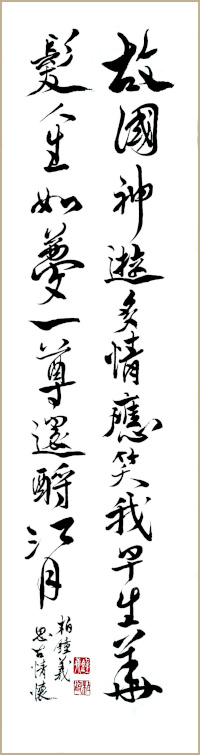 故國神遊多情應笑我早生華
髮人生如夢一尊還酹江月
思古情懷